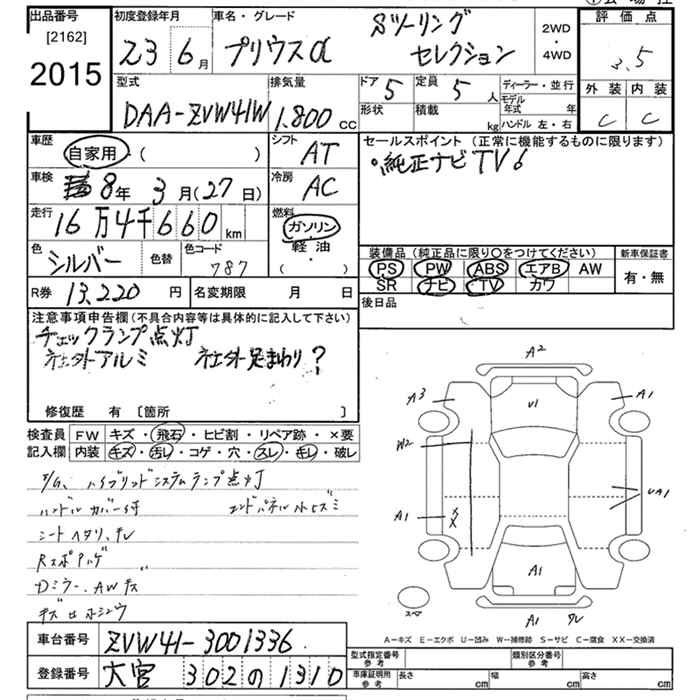 出品番号 初度登録年月 車名・グレード 評価点
[2162] 2015
23 6月 プリウスα Sツーリング セレクション
2WD・4WD
3.5
型式 排気量 ドア 定員 ディーラー・並行 外装 内装
DAA-ZVW41W 1.800cc 5 5人 モデル年式 年 C C
形状 積載 kg ハンドル 左・右
車歴 自家用・( )
シフト AT
セールスポイント (正常に機能するものに限ります)
・純正ナビTV
車検 8年 3月(27日)
冷房 AC
走行 16万4千660km
燃料 ガソリン 軽油・( )
色 シルバー 色替 色コード 787
装備品 (純正品に限り○をつけてください) 新車保証書
PS PW ABS エアB AW 有・無
SR ナビ TV カワ
R券 13,220円 名変期限 月 日
後日品
注意事項申告欄(不具合内容等は具体的に記入して下さい)
チェックランプ点灯
社外アルミ 社外足まわり?
修復歴 有 [箇所 ]
検査員記入欄 FW キズ・飛石・ヒビ割・リペア跡・×要
内装 キズ・汚レ・コゲ・穴・スレ・キレ・破レ
ハイブリッドシステムランプ点灯
ハンドルカバー付 エンドパネル小ヒズミ
シートヘタリ、チレ
Dミラー、AWキズ
A2
A3 U1 A1
W2
A1 XX UA1
A1
スペア A1
A-キズ E-エクボ U-凹み W-補修跡 S-サビ C-腐食 XX-交換済
車台番号 ZVW41-3001336
型式指定番号 参考 類別区分番号 参考
登録番号 大宮 302 の 1310
車庫証明用 参考 長さ cm 幅 cm 高さ cm